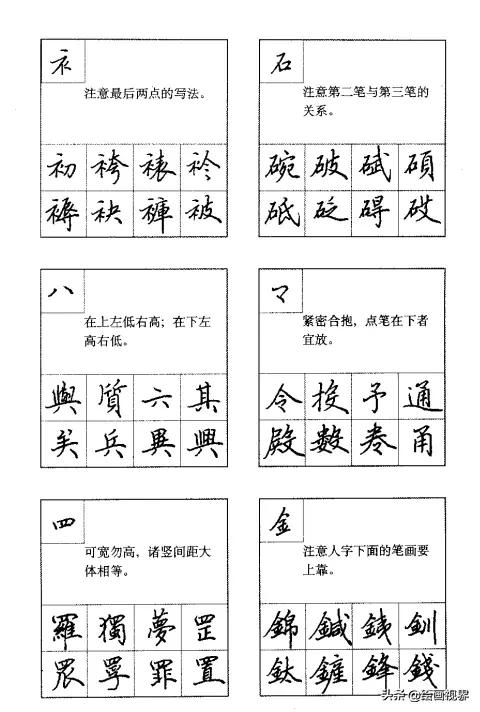 衤
注意最后两点的写法。
初 袴 裱 衿
褥 袂 褲 被
石
注意第二笔与第三笔的
关系。
碗 破 碔 碩
砥 砭 碍
八
在上左低右高；在下左
高右低。
與 質 六 其
关 兵 異 興
龴
紧密合抱，点笔在下者
宜放。
令 予 通
殿 数 卷 甬
罒
可宽勿高，诸竖间距大
体相等。
羅 獨 夢 罡
罪 置
金
注意人字下面的笔画要
上靠。
錦 鍼 銕 釧
鈦 鋒 錢
头条 @绘画视界